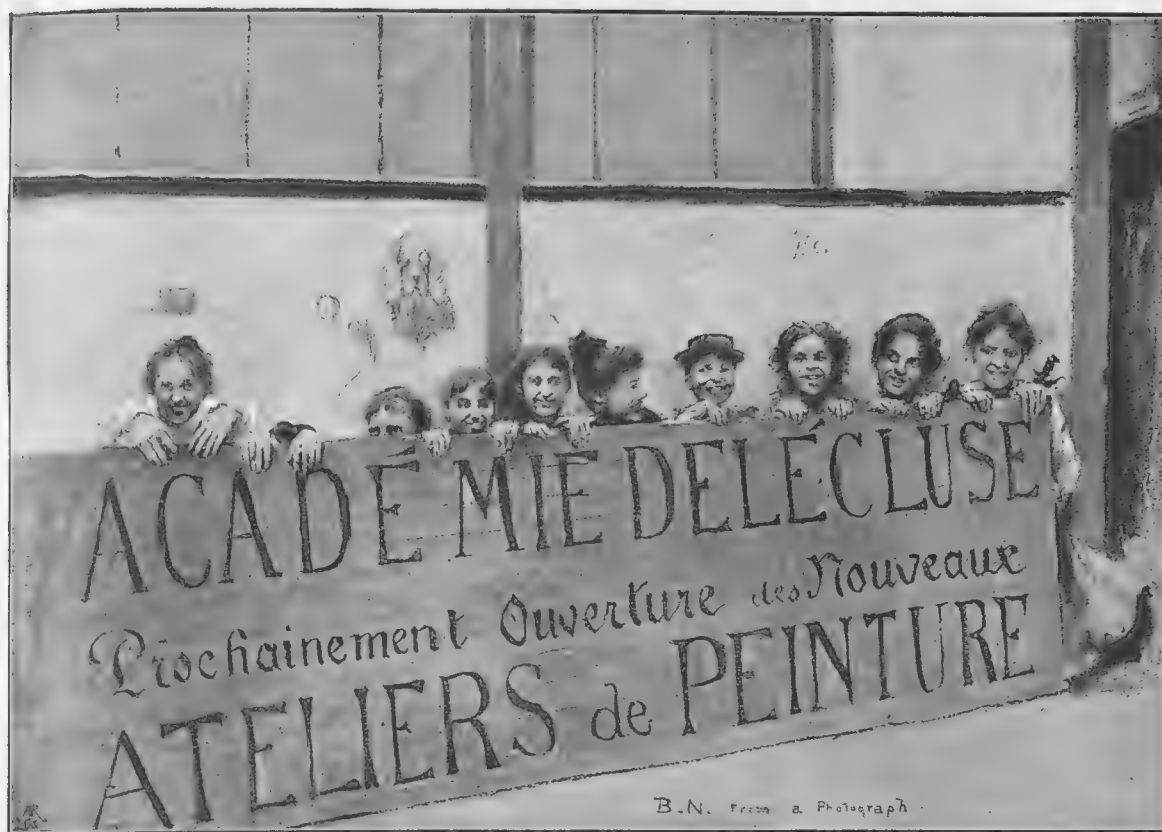 ACADÉMIE DELÉCLUSE
Prochainement Ouverture des Nouveaux
ATELIERS de PEINTURE
B.N. From a Photograph